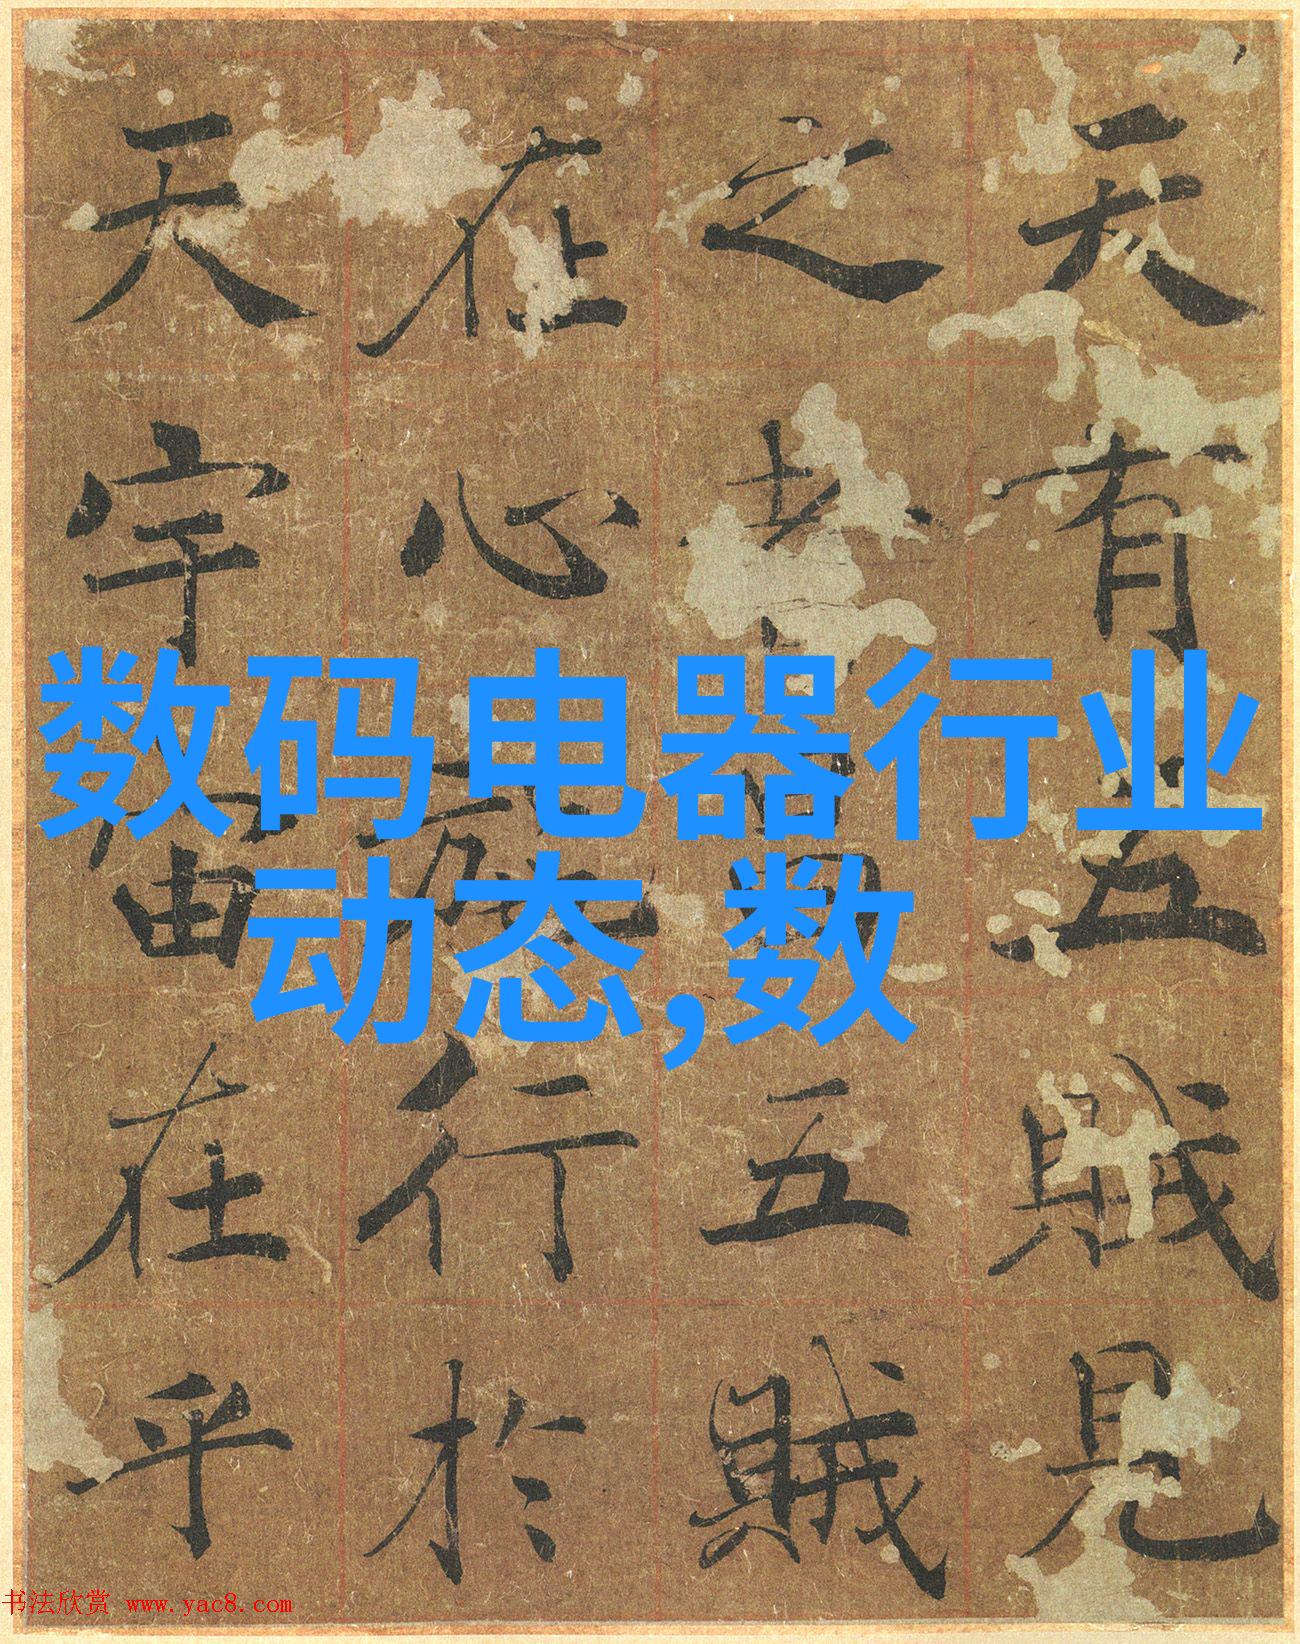 天有五賊見
之者昌五賊
在心施行於
天宇宙在乎
数码电器行业
动态,数
书法欣赏 www.yac8.com